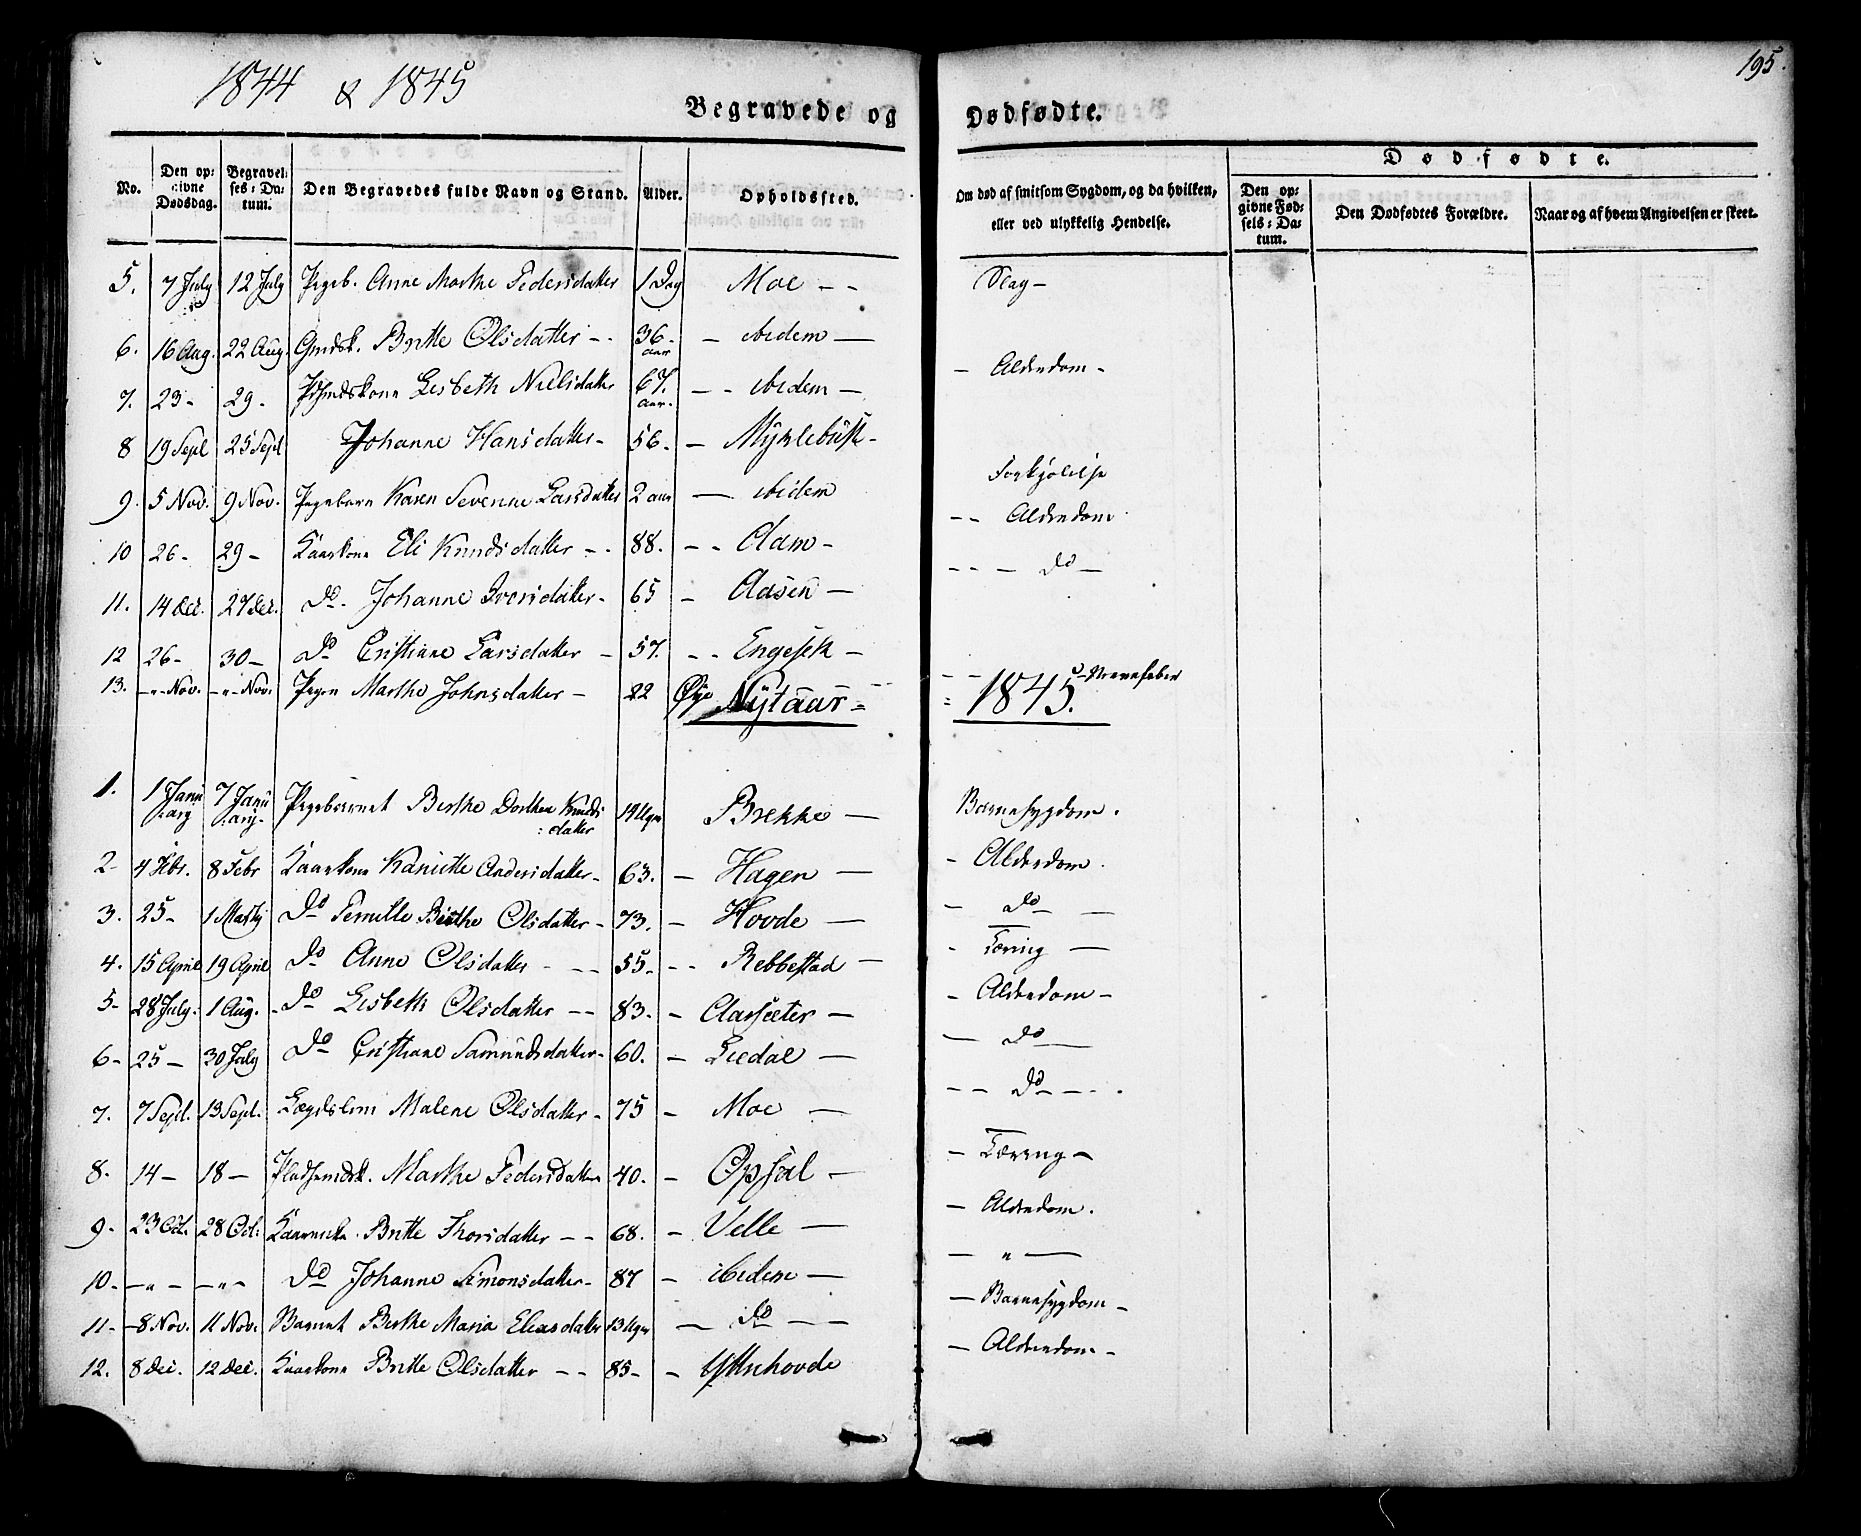 195.
1844 & 1845
Begravede og Dødfødte.
Dødfødte.
No. | Den opgivne Dødsdag. | Begravelses-Datum. | Den Begravedes fulde Navn og Stand. | Alder. | Opholdssted. | Om død af smitsom Sygdom, og da hvilken, eller ved ulykkelig Hendelse. | Den opgivne Fødsels-Datum. | Den Dødfødtes Forældre. | Naar og af hvem Angivelsen er skeet.
5. | 7 July | 12 July | Pigeb. Anne Marthe Pedersdatter | 1 Dag | Moe - - | Slag -
6. | 16 Aug. | 22 Aug. | Gmdsk. Britte Olsdatter - - | 36 - aar | - ibidem -
7. | 23 - | 29 - | Lisbeth Nielsdatter | 67. aar - | - - ibidem - | - Alderdom -
8 | 19 Sept | 25 Sept | Johanne Hansdatter - | 56 - | - Myklebust -
9. | 5 Nov. | 9 Nov. | Pigebarn Karen Severine Larsdatter | 2 aar | - ibidem | Forkjølelse
10 | 26 - | 29 - | Kaarkone Eli Knudsdatter - - | 88. | - - Aam - | - - Alderdom
11. | 14 Dec. | 27 Dec. | Do. Johanne Iversdatter - | 65 | - Aasen - | - - - Do -
12 | 26 - | 30 - | Do Cristiane Larsdatter - | 57. | - - Engeset -
13. | - " - Nov. | - " - Nov. | Pigen Marthe Johnsdatter - | 22 | Øye | - - Nervefeber
Nytaar = = 1845.
1. | 1 Januarij | 7 Januarij | Pigebarnet Berthe Dorthea Knudsdatter | 14 Uger | Brekke - | Barnesygdom.
2 - | 4 Febr. | 8 Febr | Kaarkone Kanutte Andersdatter - | 63. | - Hagen - | - Alderdom.
3. | 25 - | 1 Martij | Do Pernille Birthe Olsdatter - | 73. | - Hovde - | - Do -
4. | 15 April | 19 April | Do Anne Olsdatter - - - | 55 - | - - Rebbestad - | - Tæring -
5 - | 28 July. | 1 Aug. | - Do Lisbeth Olsdatter - - | 83. | - Aarsæter - | - Alderdom -
6 - | 25 - | 30 July | Do Cristiane Samundsdatter - | 60. | - Liedal - | - Do -
7. | 7 Sept. | 13 Sept. | Lægdslem Malene Olsdatter - | 75 | - Moe - | - - Do - - .
8. | 14 - | 18 - | Pladsmdsk. Marthe Pedersdatter | 40. | - Opsal - | - Tæring -
9. | 23 Oct. | 28 Oct. | Britte Thorsdatter - - | 68. | - Velle - | - Alderdom.
10. | - " - | - " - | Do Johanne Simonsdatter - | 87 | - ibidem - | - " -
11. | - 8 Nov. | 11 Nov. | Barnet Berthe Maria Eliasdatter | 13 Uger | - Do - - | - Barnesygdom -
12. | 8 Dec. | 12 Dec. | Kaarkone Britte Olsdatter - - | 85 - | - Ytrehovde | - Alderdom -